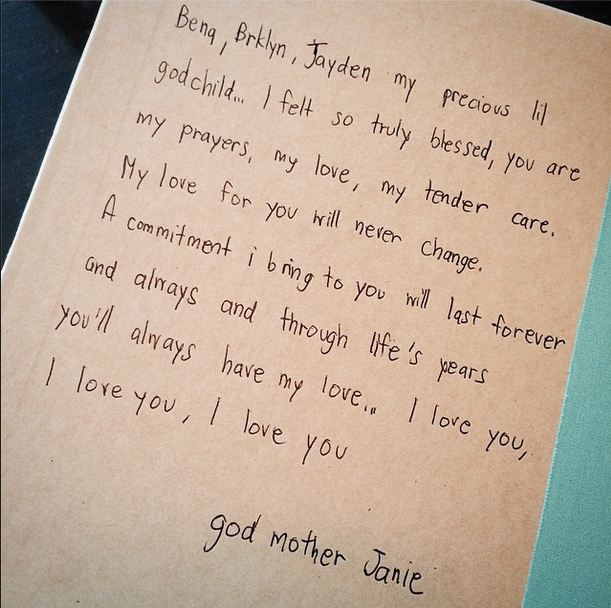 Benq, Brklyn, Jayden my precious lil
godchild... I felt so truly blessed, you are
my prayers, my love, my tender care.
My love for you will never change.
A commitment i bring to you will last forever
and always and through life's years
you'll always have my love... I love you,
I love you, I love you
god mother Janie